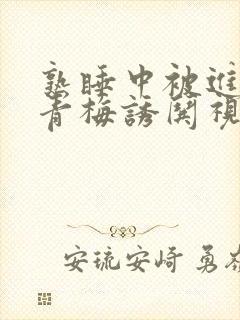 熟睡中被進
青梅誘関視
安琉安崎 勇